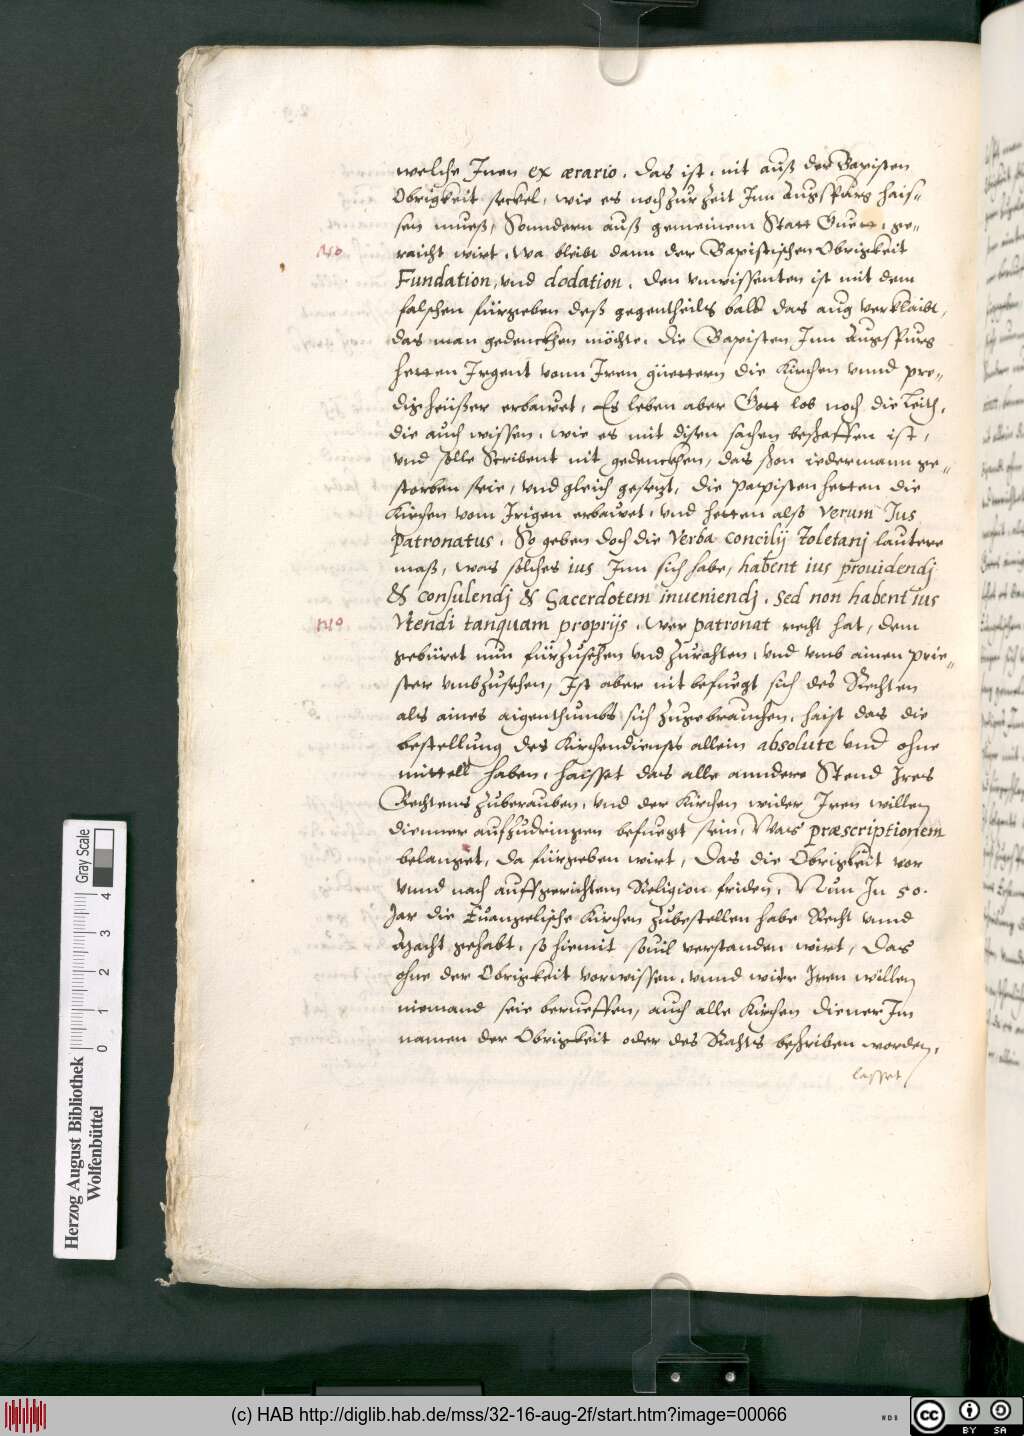 welche Inen ex ærario, das ist, nit auß der Bapisten
Obrigkeit seckel, wie es noch zur Zeit Inn Augspurg hais-
sen mueß, Sonndern auß gemeinem Statt Guett, ge-
raicht wirt, wa bleibt dann der Bapistischen Obrigkeit
Fundation, vnd dodation. Den vnwissenten ist mit dem
falschen fürgeben deß gegentheils bald das aug verklaibt,
das man gedenckhen möchte, die Bapisten Inn Augspurg
hetten Irgent vonn Iren güettern die Kirchen vnnd pre-
digheüßer erbawet, Es leben aber Gott lob noch die Leith,
die auch wissen, wie es mit disen sachen beschaffen ist,
vnd solle Scribent nit gedenckhen, das schon iedermann ge-
storben seie, vnd gleich gesetzt, die papisten hetten die
Kirchen vom Irigen erbawet, vnd hetten alß verum Ius
patronatus, So geben doch die verba concilij Toletanj lautere
maß, was solches ius Inn sich habe, habent ius prouidendj
& consulendj & Sacerdotem inueniendj, sed non habent ius
vtendi tanquam proprijs, Wer patronat recht hat, dem
gebüret nun fürzusehen vnd zurathen, vnd vmb ainen prie-
ster vmbzusehen, Ist aber nit befuegt sich des Rechten
als aines aigenthumbs sich zugebrauchen, haist das die
bestellung des Kirchendiensts allein absolute vnd ohne
mittell haben, haisset das alle anndere Stend Ires
Rechtens zuberauben, vnd der Kirchen wider Iren willen
diennner aufzudringen befuegt sein, Was præscriptionem
belanget, da fürgeben wirt, Das die Obrigkeit vor
vnnd nach auffgerichtem Religion friden, Nun In 50.
Jar die Euangelische Kirchen zubestellen habe Recht vnnd
Macht gehabt, so hiemit souil verstanden wirt, Das
ohne der Obrigkeit vorwissen, vnnd wider Iren willen
niemand seie berueffen, auch alle Kirchen diener Im
namen der Obrigkeit oder des Rahts beschriben worden,
lasset
Herzog August Bibliothek
Wolfenbüttel
0 1 2 3 4
Gray Scale
(c) HAB http://diglib.hab.de/mss/32-16-aug-2f/start.htm?image=00066
WDB
cc BY SA